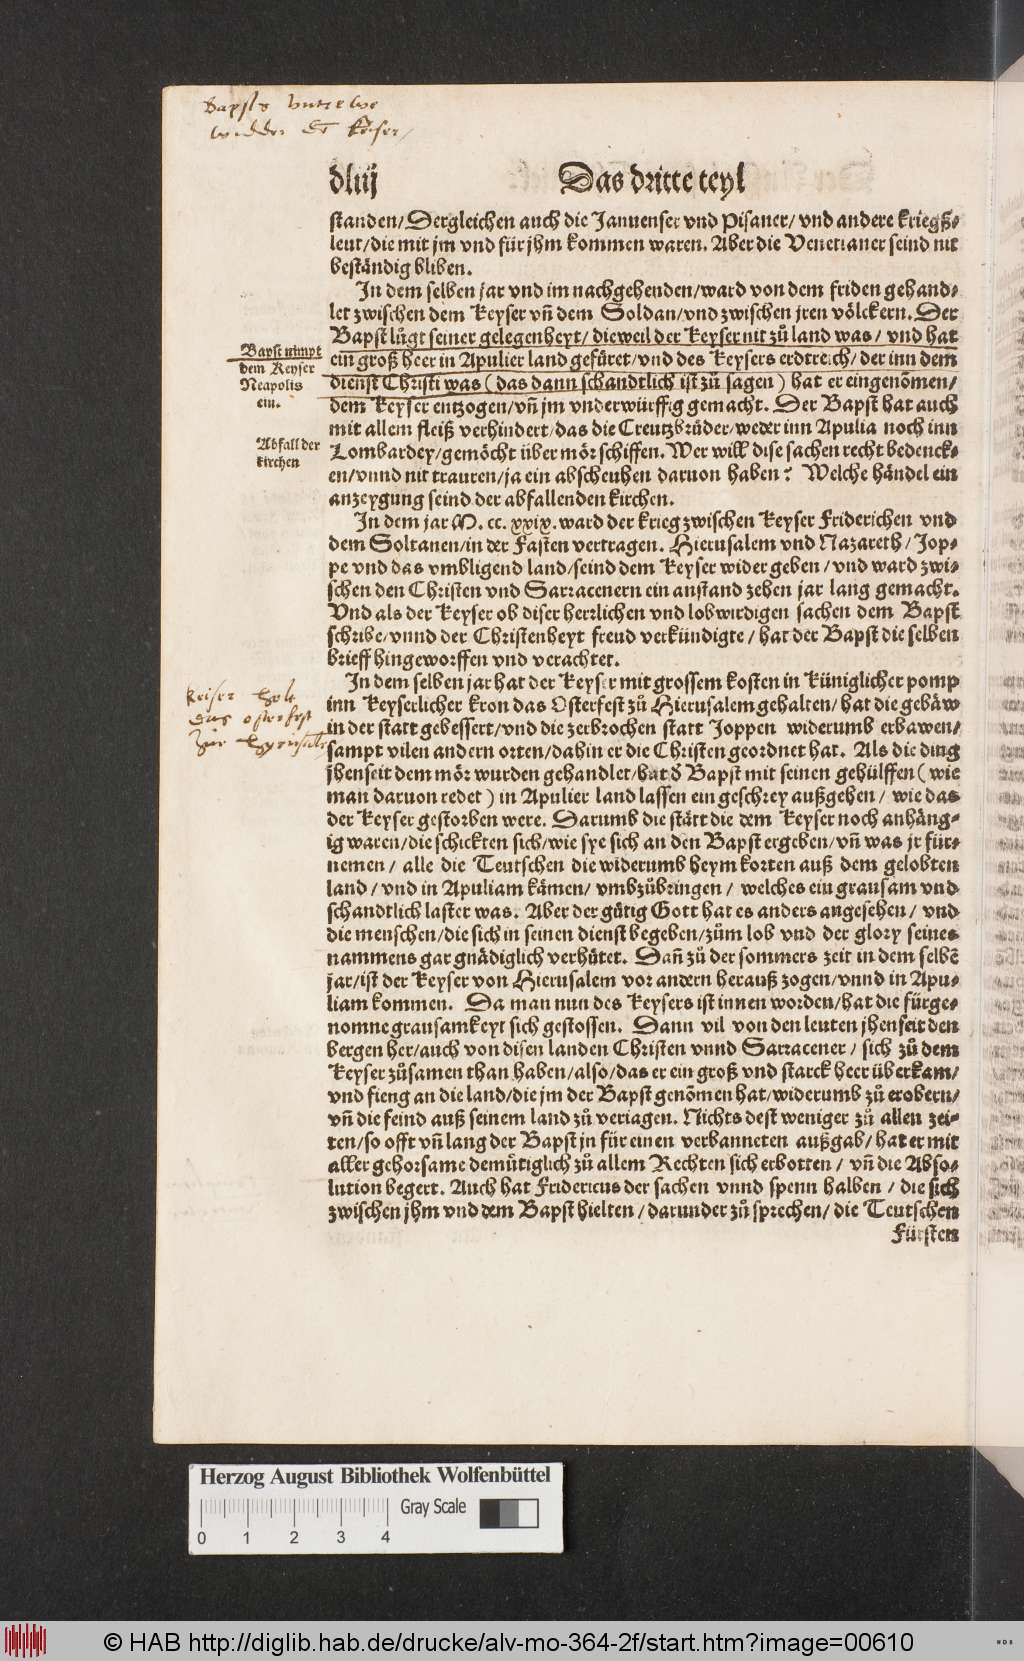 Bapsts vntrewe
widder dē keiser /
dliij
Das dritte teyl
standen / Dergleichen auch die Januenser vnd Pisaner / vnd andere kriegß⸗
leut / die mit jm vnd für jhm kommen waren. Aber die Venetianer seind nit
beständig bliben.
In dem selben jar vnd im nachgehenden / ward von dem friden gehand⸗
let zwischen dem Keyser vn̄ dem Soldan / vnd zwischen jren völckern. Der
Bapst lůgt seiner gelegenheyt / dieweil der Keyser nit zů land was / vnd hat
ein groß heer in Apulier land gefůret / vnd des Keysers erdtreich / der inn dem
dienst Christi was ( das dann schandtlich ist zů sagen ) hat er eingenōmen /
dem Keyser entzogen / vn̄ jm vnderwürffig gemacht. Der Bapst hat auch
mit allem fleiß verhindert / das die Creutzbrůder / weder inn Apulia noch inn
Lombardey / gemöcht über mör schiffen. Wer will dise sachen recht bedenck⸗
en / vnnd nit trauren / ja ein abscheuhen daruon haben? Welche händel ein
anzeygung seind der abfallenden kirchen.
Bapst nimpt
dem Keyser
Neapolis
ein.
Abfall der
kirchen
In dem jar M. cc. xxix. ward der krieg zwischen Keyser Friderichen vnd
dem Soltanen / in der Fasten vertragen. Hierusalem vnd Nazareth / Jop⸗
pe vnd das vmbligend land / seind dem Keyser wider geben / vnd ward zwi⸗
schen den Christen vnd Sarracenern ein anstand zehen jar lang gemacht.
Vnd als der Keyser ob diser herzlichen vnd lobwirdigen sachen dem Bapst
schribe / vnnd der Christenheyt freud verkündigte / hat der Bapst die selben
brieff hingeworffen vnd verachtet.
In dem selben jar hat der Keyser mit grossem kosten in Küniglicher pomp
inn Keyserlicher kron das Osterfest zů Hierusalem gehalten / hat die gebäw
in der statt gebessert / vnd die zerbrochen statt Joppen widerumb erbawen /
sampt vilen andern orten / dahin er die Christen geordnet hat. Als die ding
jhenseit dem mör wurden gehandlet / hat d̄ Bapst mit seinen gehülffen ( wie
man daruon redet ) in Apulier land lassen ein geschrey außgehen / wie das
der Keyser gestorben were. Darumb die stätt die dem Keyser noch anhäng⸗
ig waren / die schickten sich / wie sye sich an den Bapst ergeben / vn̄ was jr für⸗
nemen / alle die Teutschen die widerumb heym korten auß dem gelobten
land / vnd in Apuliam kämen / vmbzůbringen / welches ein grausam vnd
schandtlich laster was. Aber der gůtig Gott hat es anders angesehen / vnd
die menschen / die sich in seinen dienst begeben / zům lob vnd der glory seines
nammens gar gnädiglich verhůtet. Dan̄ zů der sommers zeit in dem selbē
jar / ist der Keyser von Hierusalem vor andern herauß zogen / vnnd in Apu⸗
liam kommen. Da man nun des Keysers ist innen worden / hat die fürge⸗
nomne grausamkeyt sich gestossen. Dann vil von den leuten jhenseit den
bergen her / auch von disen landen Christen vnnd Sarracener / sich zů dem
Keyser zůsamen than haben / also / das er ein groß vnd starck heer überkam /
vnd fieng an die land / die jm der Bapst genōmen hat / widerumb zů erobern /
vn̄ die feind auß seinem land zů veriagen. Nichts dest weniger zů allen zei⸗
ten / so offt vn̄ lang der Bapst jn für einen verbanneten außgab / hat er mit
aller gehorsame demůtiglich zů allem Rechten sich erbotten / vn̄ die Abso⸗
lution begert. Auch hat Fridericus der sachen vnnd spenn halben / die sich
zwischen jhm vnd dem Bapst hielten / darunder zů sprechen / die Teutschen
Fürsten
keiser helt
das osterfest
Herzog August Bibliothek Wolfenbüttel
Gray Scale
0 1 2 3 4
© HAB http://diglib.hab.de/drucke/alv-mo-364-2f/start.htm?image=00610